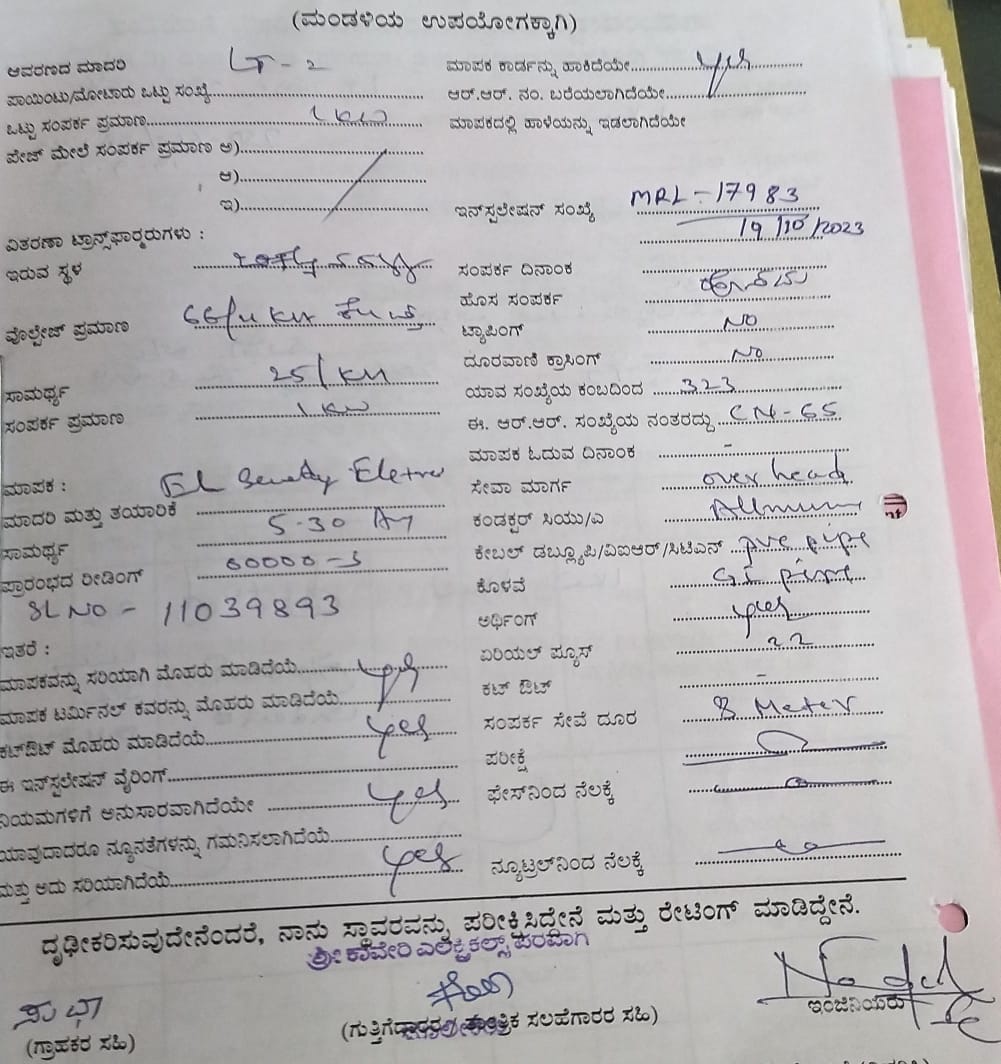 (ಮಂಡಳಿಯ ಉಪಯೋಗಕ್ಕಾಗಿ)
ಆವರಣದ ಮಾದರಿ LT - 2
ಮಾಪಕ ಕಾರ್ಡನ್ನು ಹಾಕಿದೆಯೇ Yes
ಪಾಯಿಂಟು/ಮೋಟಾರು ಒಟ್ಟು ಸಂಖ್ಯೆ
ಆರ್.ಆರ್. ನಂ. ಬರೆಯಲಾಗಿದೆಯೇ
ಒಟ್ಟು ಸಂಪರ್ಕ ಪ್ರಮಾಣ 1 KW
ಮಾಪಕದಲ್ಲಿ ಹಾಳೆಯನ್ನು ಇಡಲಾಗಿದೆಯೇ
ಪೇಜ್ ಮೇಲೆ ಸಂಪರ್ಕ ಪ್ರಮಾಣ ಅ)
ಆ)
ಇ)
ಇನ್‌ಸ್ಪಲೇಷನ್ ಸಂಖ್ಯೆ MRL - 17983
19/10/2023
ವಿತರಣಾ ಟ್ರಾನ್ಸ್‌ಫಾರ್ಮರುಗಳು :
ಇರುವ ಸ್ಥಳ
ಸಂಪರ್ಕ ದಿನಾಂಕ
ಹೊಸ ಸಂಪರ್ಕ
ವೊಲ್ಟೇಜ್ ಪ್ರಮಾಣ 66/11 KV
ಟ್ಯಾಪಿಂಗ್ NO
ದೂರವಾಣಿ ಕ್ರಾಸಿಂಗ್ NO
ಸಾಮರ್ಥ್ಯ 25/
ಯಾವ ಸಂಖ್ಯೆಯ ಕಂಬದಿಂದ 323
ಸಂಪರ್ಕ ಪ್ರಮಾಣ 1 KW
ಈ. ಆರ್.ಆರ್. ಸಂಖ್ಯೆಯ ನಂತರದ್ದು CN-65
ಮಾಪಕ ಓದುವ ದಿನಾಂಕ -
ಮಾಪಕ :
ಸೇವಾ ಮಾರ್ಗ over head
ಮಾದರಿ ಮತ್ತು ತಯಾರಿಕೆ
ಕಂಡಕ್ಟರ್ ಸಿಯು/ಎ
ಸಾಮರ್ಥ್ಯ 5-30
ಕೇಬಲ್ ಡಬ್ಲ್ಯೂಪಿ/ವಿಐಆರ್/ಸಿಟಿಎಸ್ pvc pipe
ಪ್ರಾರಂಭದ ರೀಡಿಂಗ್ 00000-5
ಕೊಳವೆ GI pipe
SL NO - 11039893
ಅರ್ಥಿಂಗ್ yes
ಇತರೆ :
ಏರಿಯಲ್ ಪ್ಯೂಸ್ 22
ಮಾಪಕವನ್ನು ಸರಿಯಾಗಿ ಮೊಹರು ಮಾಡಿದೆಯೆ yes
ಕಟ್ ಔಟ್ -
ಮಾಪಕ ಟರ್ಮಿನಲ್ ಕವರನ್ನು ಮೊಹರು ಮಾಡಿದೆಯೆ
ಸಂಪರ್ಕ ಸೇವೆ ದೂರ 8 Meter
ಕಟ್‌ಔಟ್ ಮೊಹರು ಮಾಡಿದೆಯೆ yes
ಪರೀಕ್ಷೆ
ಈ ಇನ್‌ಸ್ಪಲೇಷನ್ ವೈರಿಂಗ್
ನಿಯಮಗಳಿಗೆ ಅನುಸಾರವಾಗಿದೆಯೇ yes
ಫೇಸ್‌ನಿಂದ ನೆಲಕ್ಕೆ
ಯಾವುದಾದರೂ ನ್ಯೂನತೆಗಳನ್ನು ಗಮನಿಸಲಾಗಿದೆಯೆ
ಮತ್ತು ಅದು ಸರಿಯಾಗಿದೆಯೆ yes
ನ್ಯೂಟ್ರಲ್‌ನಿಂದ ನೆಲಕ್ಕೆ
ದೃಢೀಕರಿಸುವುದೇನೆಂದರೆ, ನಾನು ಸ್ಥಾವರವನ್ನು ಪರೀಕ್ಷಿಸಿದ್ದೇನೆ ಮತ್ತು ರೇಟಿಂಗ್ ಮಾಡಿದ್ದೇನೆ.
ಶ್ರೀ ಕಾವೇರಿ ಎಲೆಕ್ಟ್ರಿಕಲ್ಸ್ ಪರವಾಗಿ
ಇಂಜಿನಿಯರು
(ಗ್ರಾಹಕರ ಸಹಿ)
ಸಲಹೆಗಾರರ ಸಹಿ)